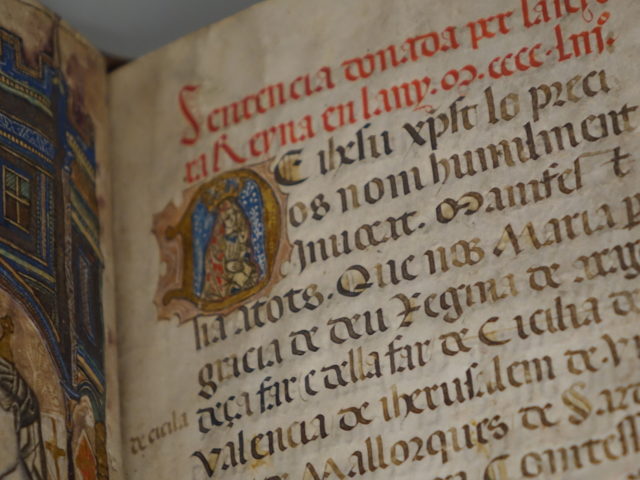 Sentencia donada per la
ra Reyna en lany. M. cccc. Liij.
DE ihesu xpst lo preci
os nom humilment
Inuocat. Manifest
sia atots. Que nos Maria p
gracia de deu Regina de arag
deça far e della far de Cicilia de
de cicilia
Valencia de iherusalem de
de Mallorques de Sar
Comtess